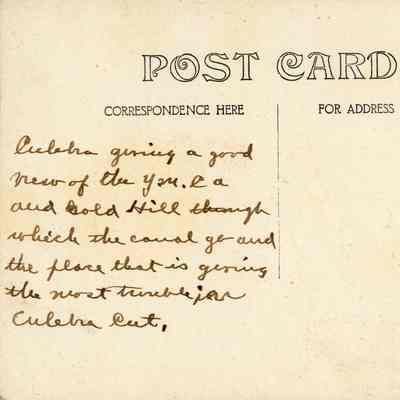 POST CARD
CORRESPONDENCE HERE
FOR ADDRESS
Culebra giving a good
view of the Y
and Gold Hill through
which the canal go and
the place that is giving
the most trouble
Culebra Cut.